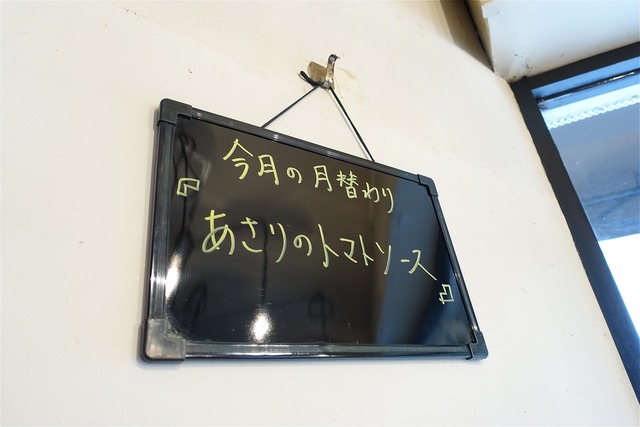 今月の月替わり
『あさりのトマトソース』